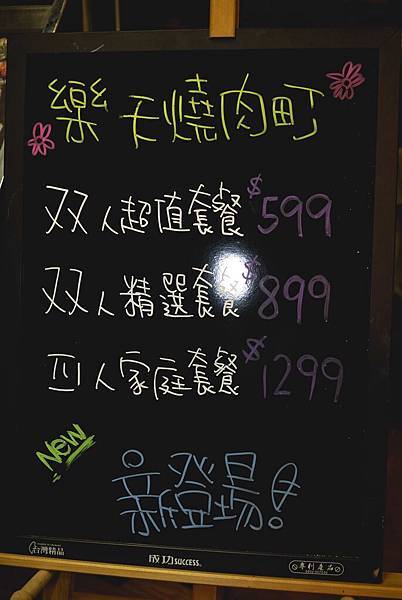 樂天燒肉町
双人超值套餐 $599
双人精選套餐 $899
四人家庭套餐 $1299
New
新登場!
台灣精品
成功 SUCCESS.
專利產品